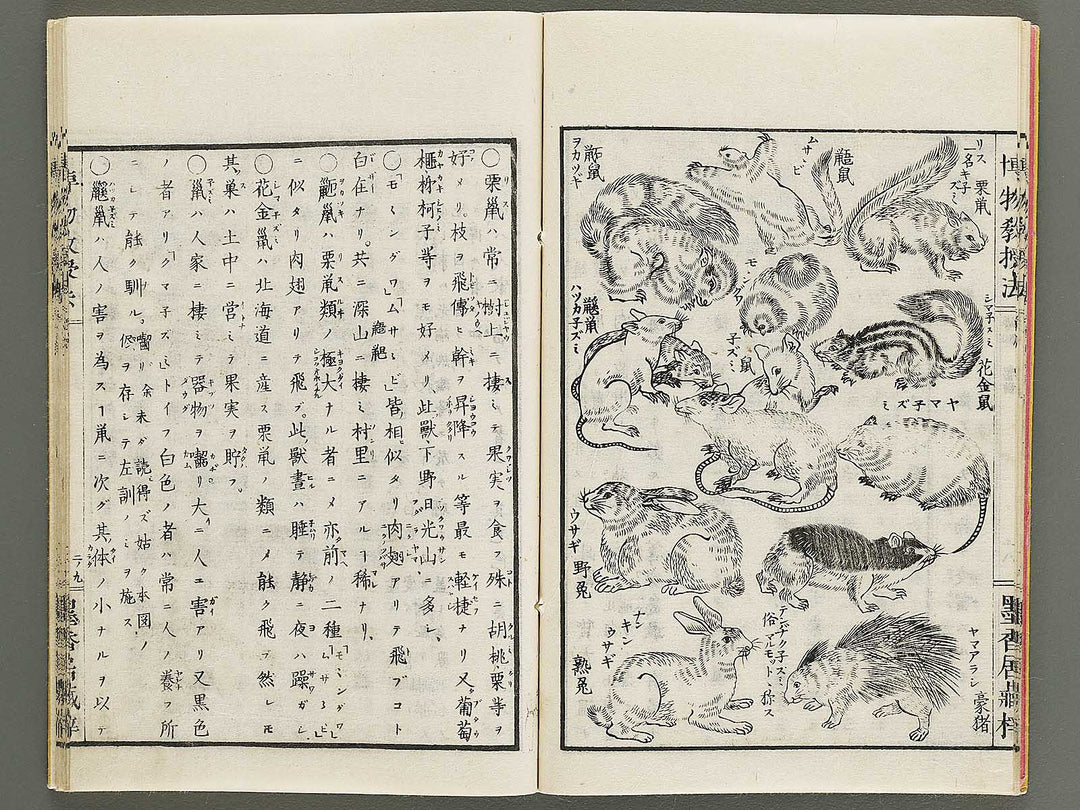 博物教授法
リス
一名キ子ズミ
栗鼠
鼯鼠
ムサヽビ
鼫鼠
ヲカツキ
モヽングワ
シマ子スミ
花金鼠
鼠
子ズミ
鼷鼠
ハツカ子ズミ
ヤマ子ズミ
ウサギ
野兎
テンヂク子ズミ
俗マルモットト称ス
ナンキンウサギ
熟兎
ヤマアラシ
豪猪
墨香居蔵梓
〇栗鼠ハ常ニ樹上ニ棲ミテ果実ヲ食フ殊ニ胡桃栗等ヲ
好メリ枝ヲ飛傳ヒ幹ヲ昇降スル等最モ軽捷ナリ又葡萄
榧柹柯子等ヲモ好メリ此獣下野日光山ニ多シ
〇「モヽングワ」「ムサヽビ」皆相似タリ肉翅アリテ飛ブコト
自在ナリ共ニ深山ニ棲ミ村里ニアルヿ稀ナリ
〇鼫鼠ハ栗鼠類ノ極大ナル者ニメ亦前ノ二種「モミングワ」「ムサヽビ」
ニ似タリ肉翅アリテ飛ブ此獣晝ハ睡テ静ニ夜ハ躁ガシ
〇花金鼠ハ北海道ニ産ス栗鼠ノ類ニメ能ク飛ブ然レモ
其巣ハ土中ニ営ミテ果実ヲ貯フ
〇鼠ハ人家ニ棲ミテ器物ヲ齧リ大ニ人ニ害アリ又黒色
ノ者アリ「クマ子ズミ」トイフ白色ノ者ハ常ニ人ノ養フ所
ニテ能ク馴ル
余未ダ読得ズ姑ク本図ノ
ヲ存シテ左訓ノミヲ施ス
〇鼷鼠ハ人ノ害ヲ為スヿ鼠ニ次グ其体ノ小ナルヲ以テ
二九
墨香居蔵梓